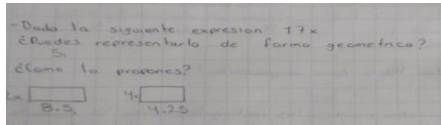 - Dada la siguiente expresion 17x
¿Puedes representarlo de forma geometrica?
Si
¿Como lo propones?
2x 4x
8.5 4.25